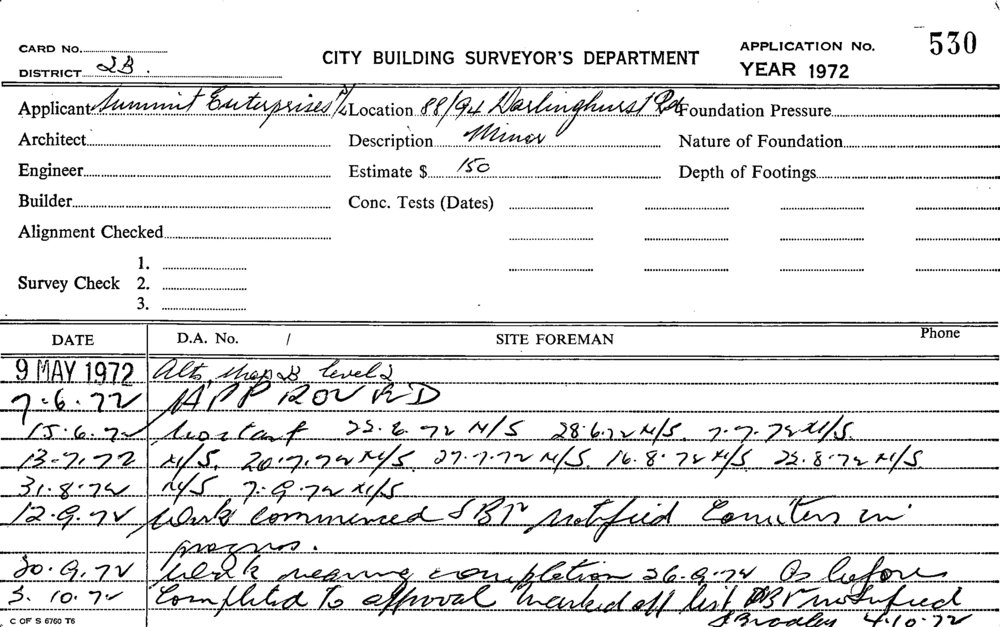 CARD No.
DISTRICT 2B.
CITY BUILDING SURVEYOR'S DEPARTMENT
APPLICATION No. 530
YEAR 1972
Applicant Summit Enterprises P/L Location 88/94 Darlinghurst Rd Foundation Pressure
Architect Description Minor Nature of Foundation
Engineer Estimate $ 150 Depth of Footings
Builder Conc. Tests (Dates)
Alignment Checked
Survey Check 1.
2.
3.
DATE D.A. No. / SITE FOREMAN Phone
9 MAY 1972 Alts shop 2B level 2
7.6.72 APPROVED
15.6.72 No start 22.6.72 N/S 28.6.72 N/S. 7.7.72 N/S.
13.7.72 N/S. 20.7.72 N/S. 27.7.72 N/S. 16.8.72 N/S 22.8.72 N/S.
31.8.72 N/S 7.9.72 N/S
12.9.72 Work commenced notified Counters in
progress.
20.9.72 Work nearing completion 26.9.72 As before
3.10.72 Completed to approval marked off list notified
Bradley 4.10.72
C OF S 6760 T6